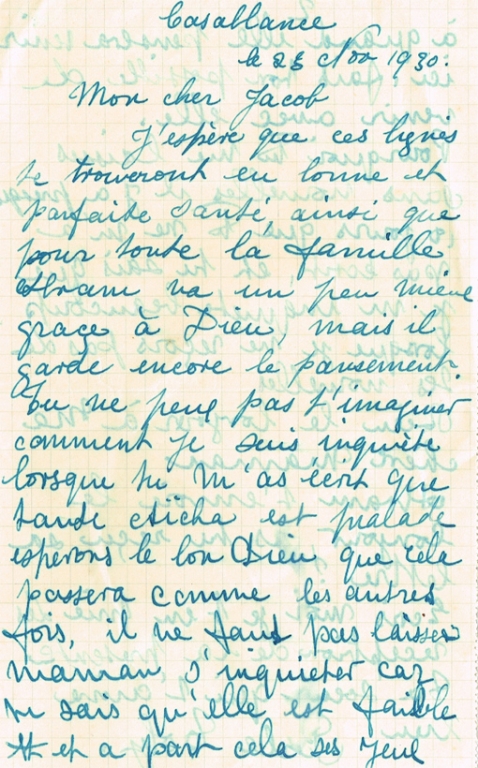 Casablance
le 25 Nov 1930.
Mon cher Jacob
J'espère que ces lignes
te trouveront en bonne et
parfaite santé, ainsi que
pour toute la famille
Abram va un peu mieux
grace à Dieu, mais il
garde encore le pansement.
Tu ne peux pas t'imaginer
comment je suis inquiète
lorsque tu m'as écrit que
tante Aïcha est malade
esperons le bon Dieu que cela
passera comme les autres
fois, il ne faut pas laisser
maman s'inquieter car
tu sais qu'elle est faible
et a part cela ses yeux